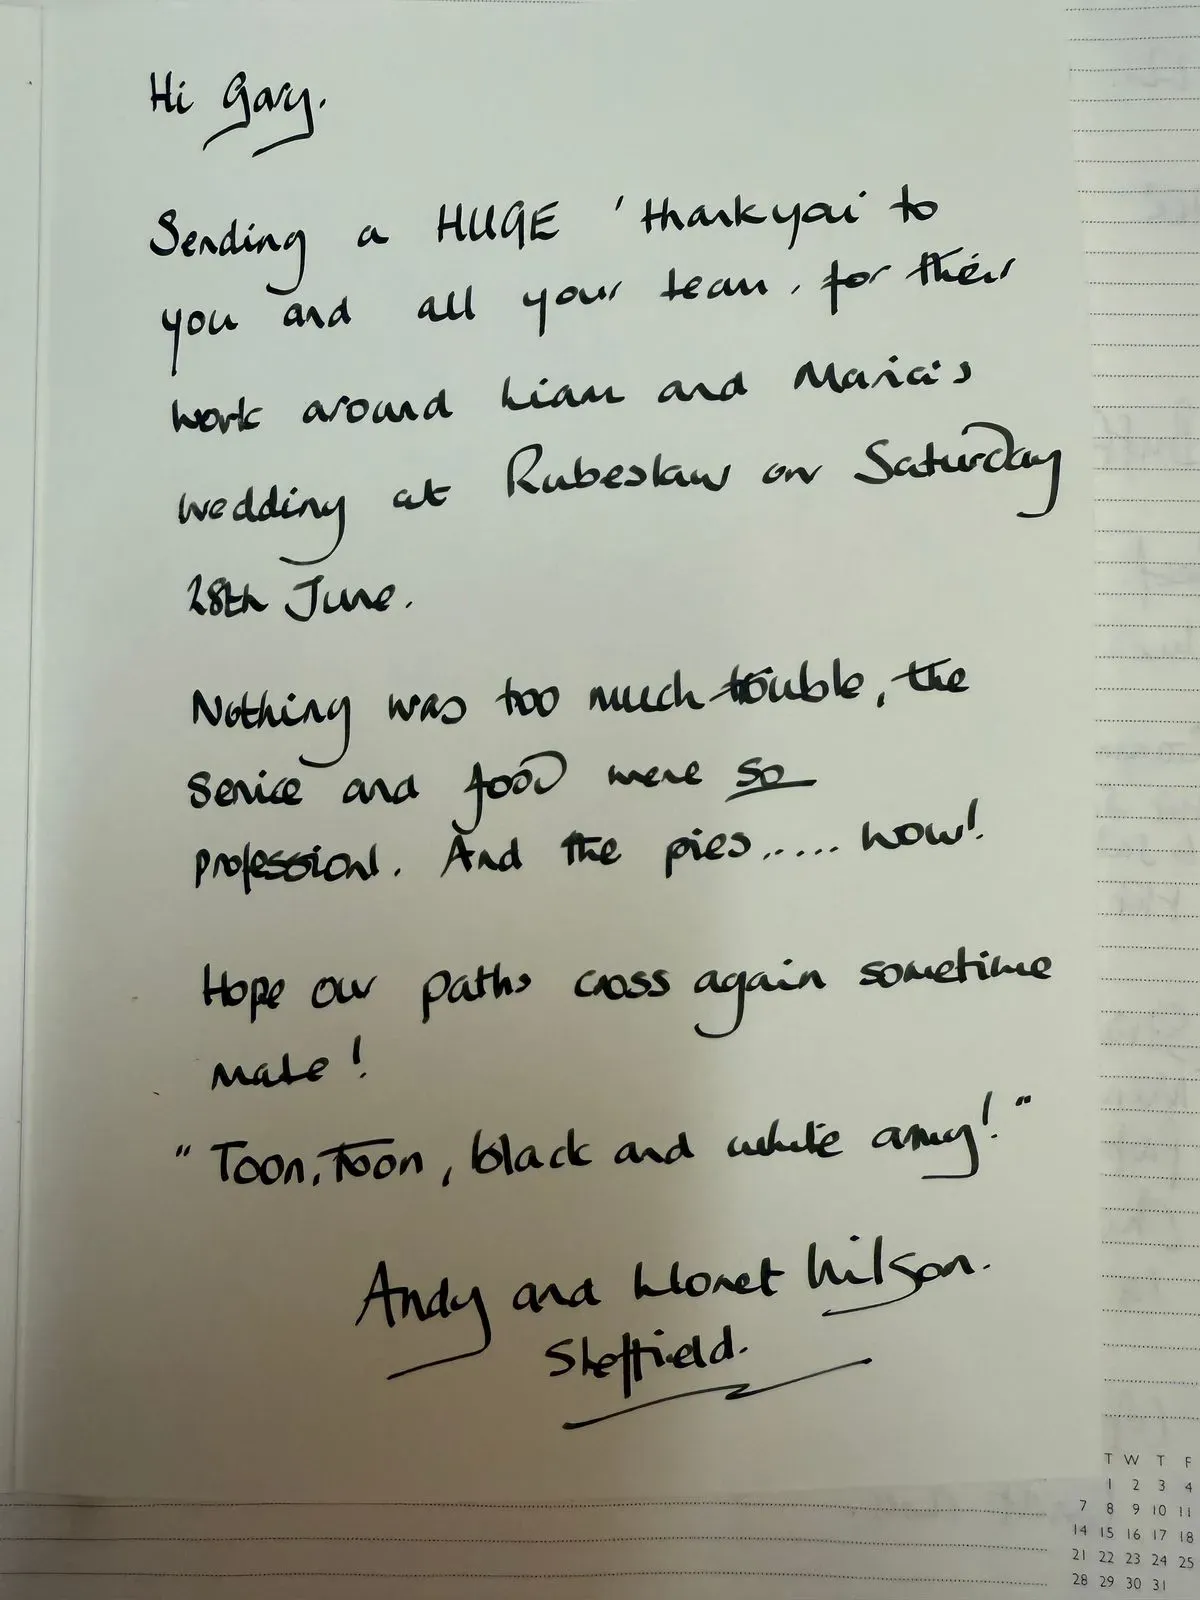 Hi Gary.
Sending a HUGE 'thankyou' to
you and all your team, for their
work around Liam and Maria's
wedding at Rubeslaw on Saturday
28th June.
Nothing was too much trouble, the
service and food were so
professional. And the pies..... wow!
Hope our paths cross again sometime
mate!
"Toon, Toon, black and white army!"
Andy and Wilson.
Sheffield.
T W T F
1 2 3 4
7 8 9 10 11
14 15 16 17 18
21 22 23 24 25
28 29 30 31